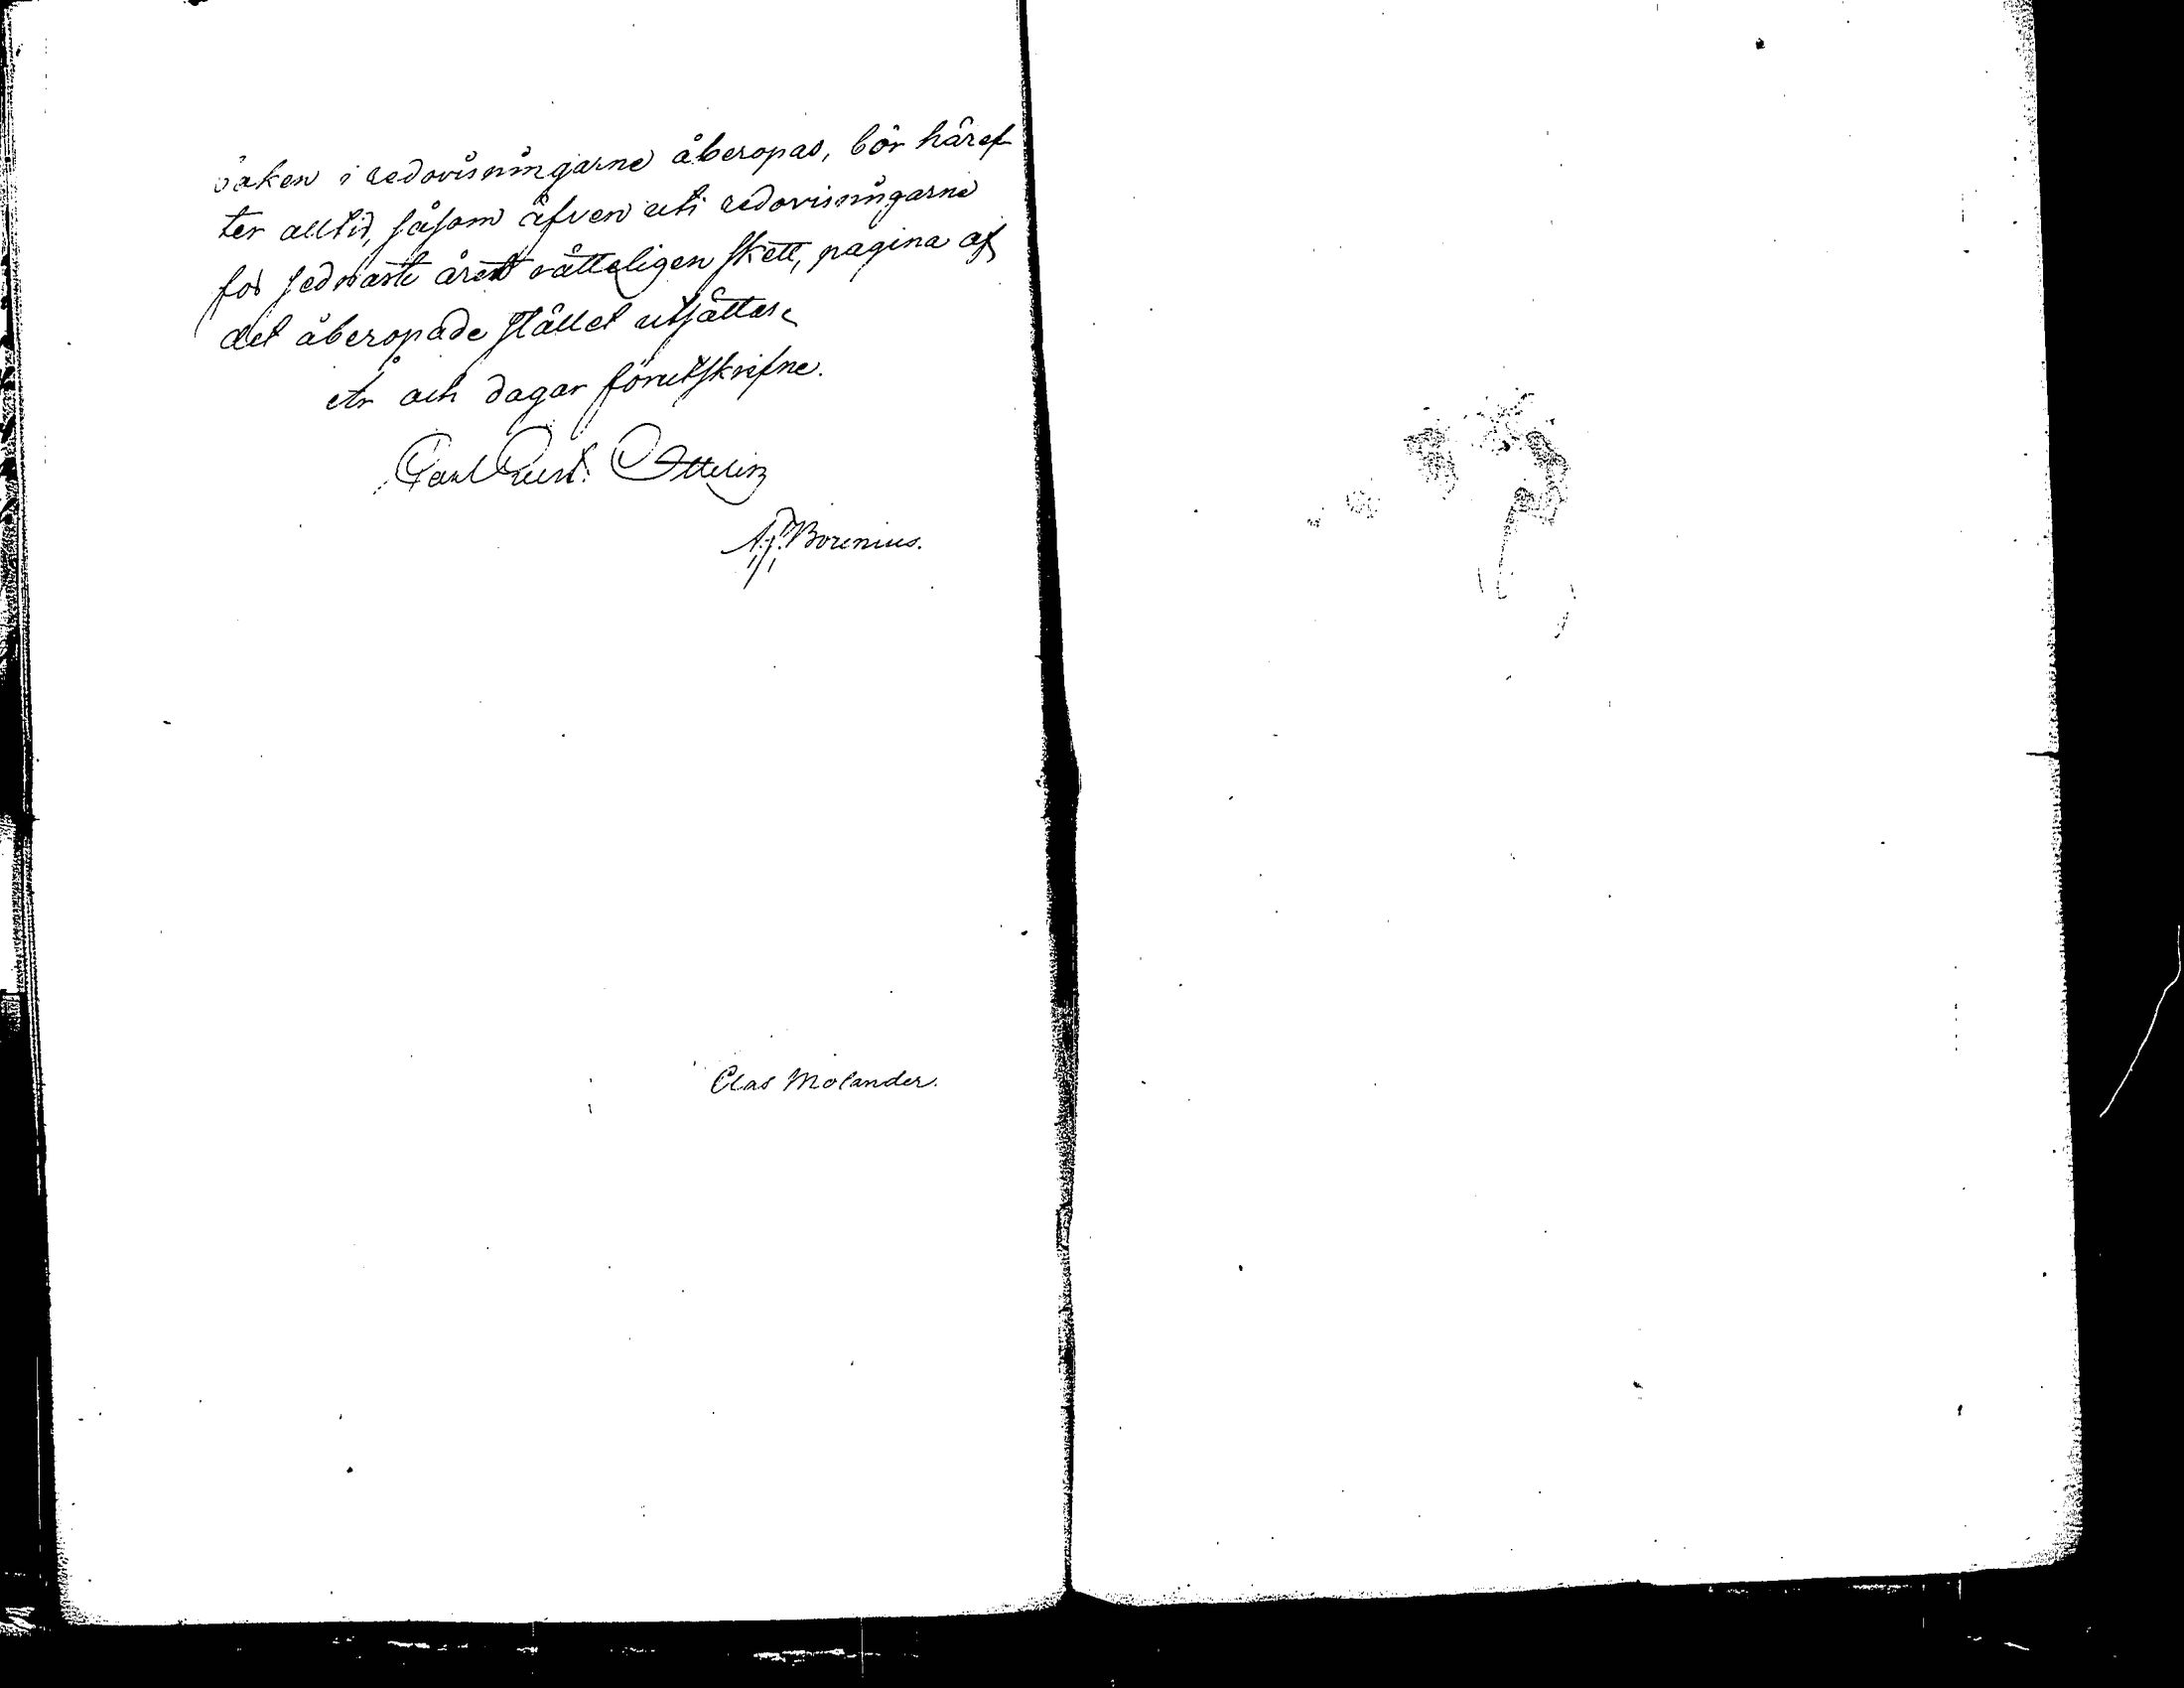 öcken i redovisningarne åberopas, bör häref
ter alltid, såsom äfven uti redovisningarne
för sednaste året rätteligen skett, pagina af
det åberopade stället utsättas.
År och dagar förutskrifne.
Carl Gust: Ottelin
Borenius.
Clas Molander.